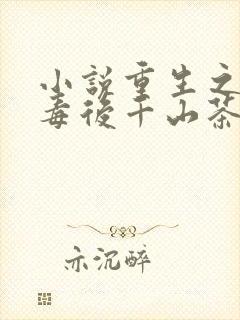 小说重生之
毒后千山茶
亦沉醉